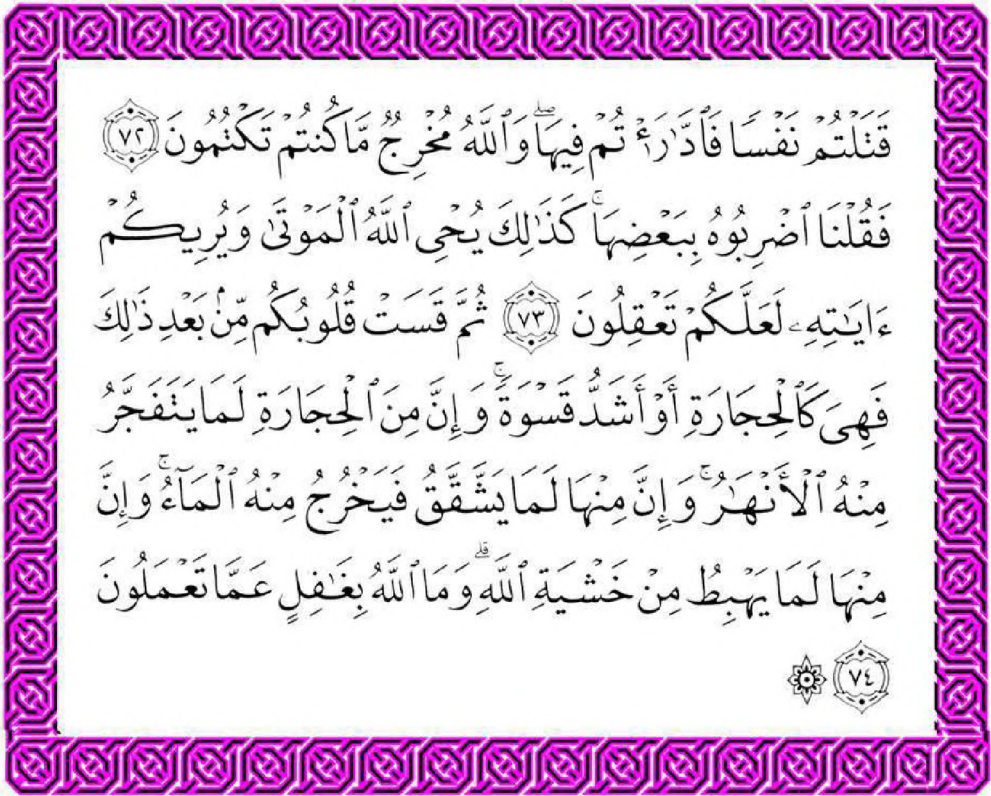 قَتَلْتُمْ نَفْسًا فَٱدَّٰرَْٰٔتُمْ فِيهَا ۖ وَٱللَّهُ مُخْرِجٌ مَّا كُنتُمْ تَكْتُمُونَ ٧٢
فَقُلْنَا ٱضْرِبُوهُ بِبَعْضِهَا ۚ كَذَٰلِكَ يُحْىِ ٱللَّهُ ٱلْمَوْتَىٰ وَيُرِيكُمْ
ءَايَٰتِهِۦ لَعَلَّكُمْ تَعْقِلُونَ ٧٣ ثُمَّ قَسَتْ قُلُوبُكُم مِّنۢ بَعْدِ ذَٰلِكَ
فَهِىَ كَٱلْحِجَارَةِ أَوْ أَشَدُّ قَسْوَةً ۚ وَإِنَّ مِنَ ٱلْحِجَارَةِ لَمَا يَتَفَجَّرُ
مِنْهُ ٱلْأَنْهَٰرُ ۚ وَإِنَّ مِنْهَا لَمَا يَشَّقَّقُ فَيَخْرُجُ مِنْهُ ٱلْمَآءُ ۚ وَإِنَّ
مِنْهَا لَمَا يَهْبِطُ مِنْ خَشْيَةِ ٱللَّهِ ۗ وَمَا ٱللَّهُ بِغَٰفِلٍ عَمَّا تَعْمَلُونَ
٧٤